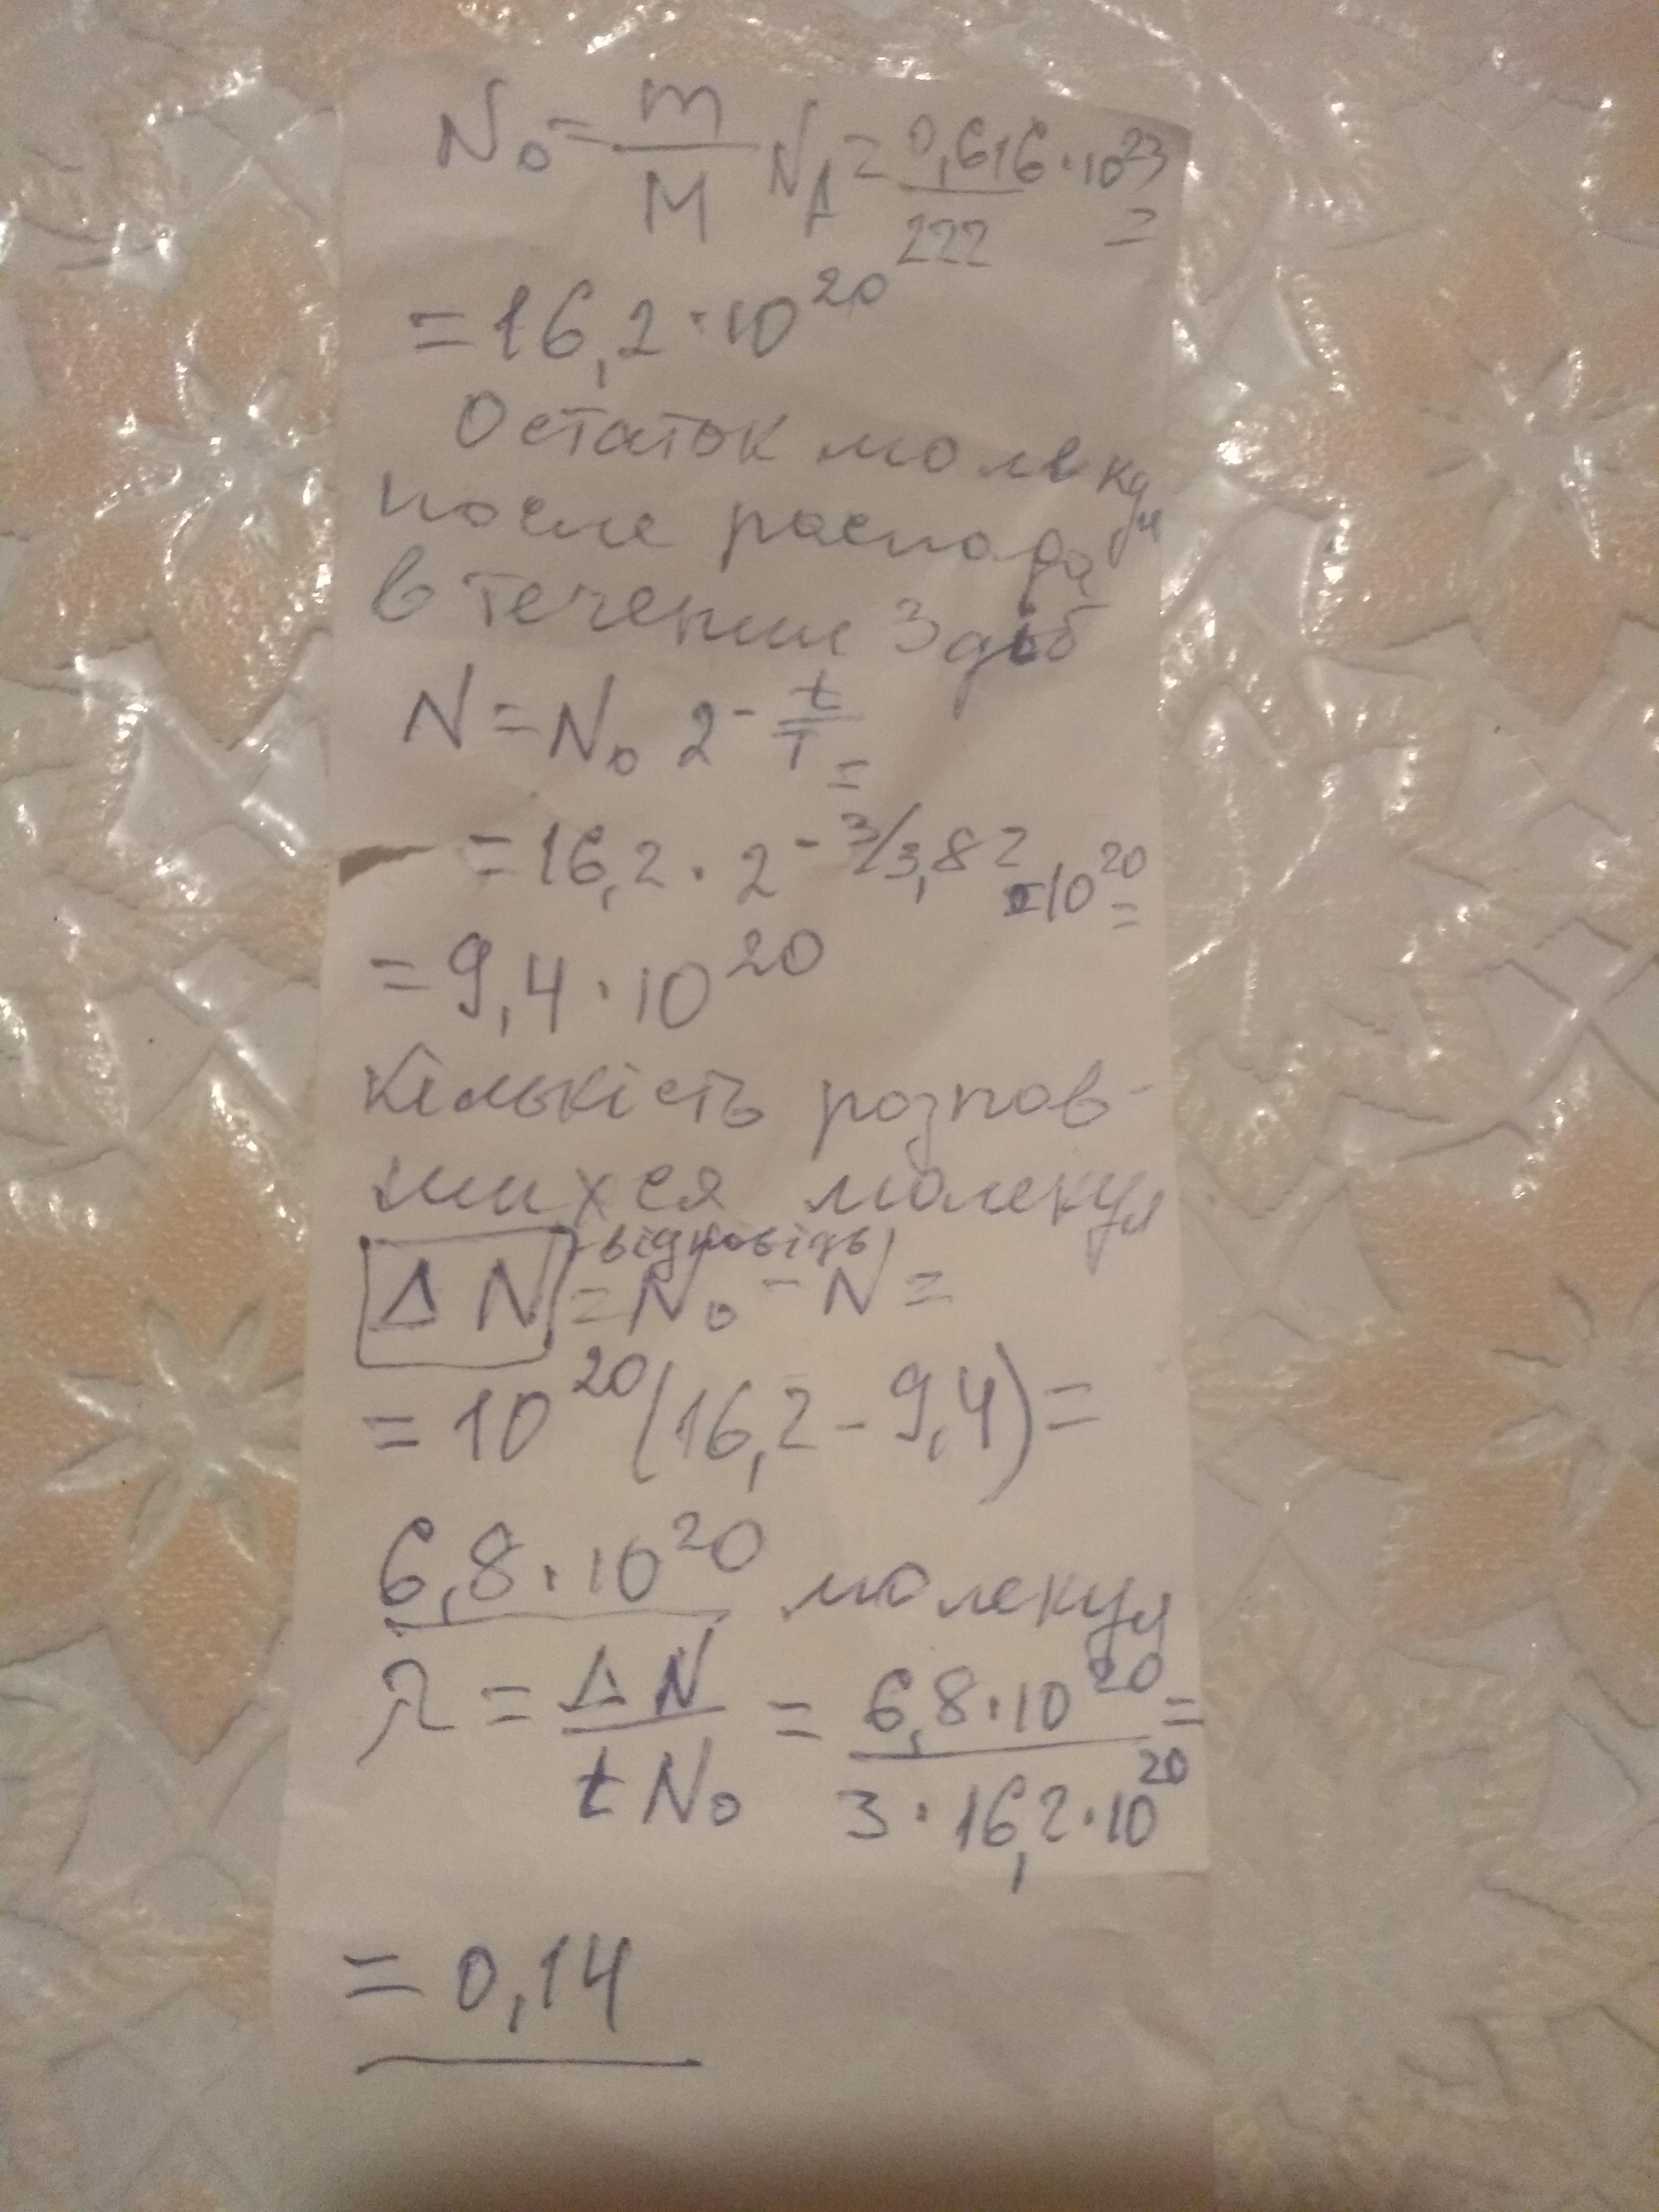 N₀ = m/M N_A = 0,616·10²³/222 =
= 16,2·10²⁰
Остаток молекул
после распада
в течении 3 діб
N = N₀ 2^(-t/T) =
= 16,2·2^(-3/3,82)·10²⁰ =
= 9,4·10²⁰
Кількість розпав-
шихся молекул
відповідь
ΔN = N₀ - N =
= 10²⁰(16,2 - 9,4) =
6,8·10²⁰ молекул
λ = ΔN/tN₀ = 6,8·10²⁰/3·16,2·10²⁰ =
= 0,14